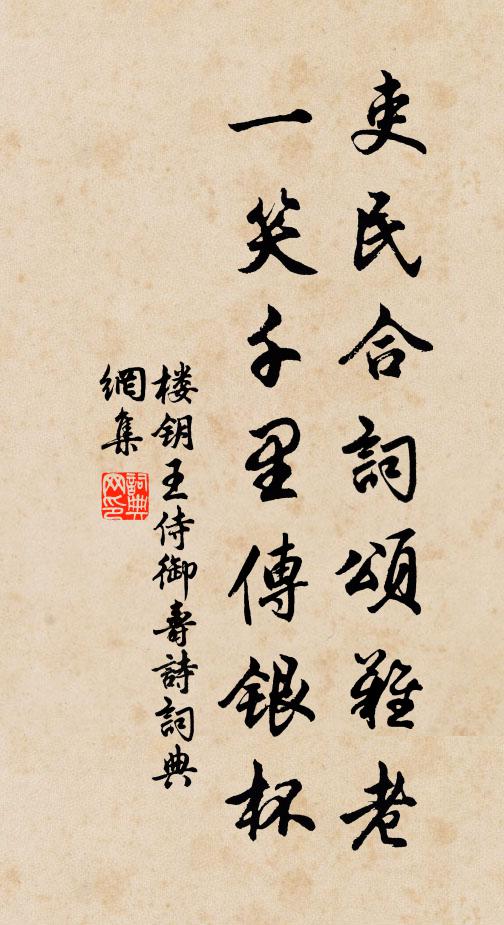 吏民合詞頌難老
一笑千里傳銀杯
楼钥王侍御壽詩詞典
網集
詞典网印